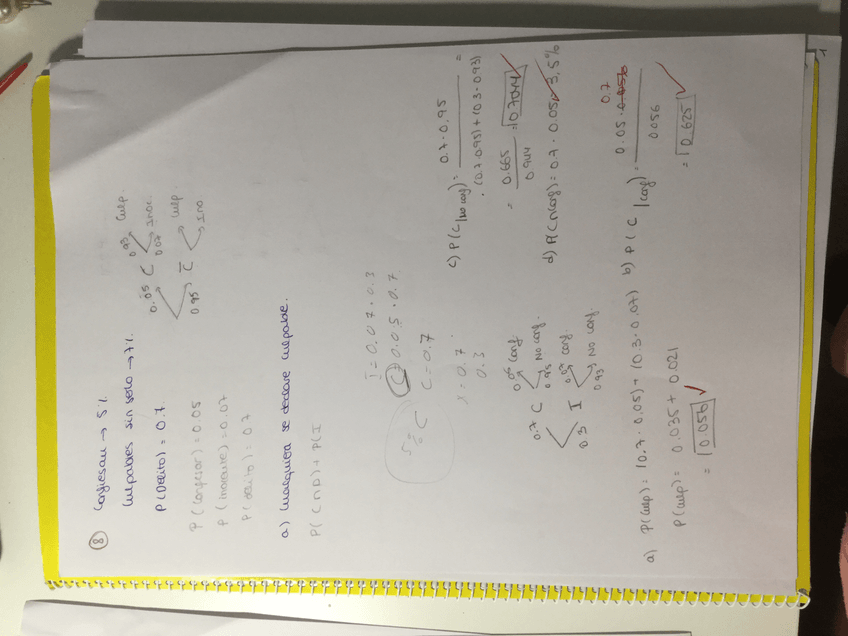 8 Confiesan → 5%
Culpables sin serlo → 7%
P(Delito) = 0.7.
0.05 C 0.93 Culp.
0.07 Inoc.
0.95 C̄ Culp.
Ino.
P(confesar) = 0.05
P(inocente) = 0.07
P(delito) = 0.7
a) cualquiera se declare culpable.
P(C∩D) + P(I
I = 0.07 · 0.3
C = 0.05 · 0.7
5% C
C = 0.7
I = 0.7 ·
0.3
0.7 C 0.05 conf.
0.95 No conf.
0.3 I 0.07 conf.
0.93 No conf.
a) P(culp) = (0.7 · 0.05) + (0.3 · 0.07)
P(culp) = 0.035 + 0.021
= 0.056
b) P(C/conf) = 0.05 · 0.056 0.7
0.056
= 0.625
c) P(C/no conf) = 0.7 · 0.95 =
(0.7 · 0.95) + (0.3 · 0.93)
= 0.665 = 0.7044
0.944
d) P(C∩conf) = 0.7 · 0.05 3.5%
1